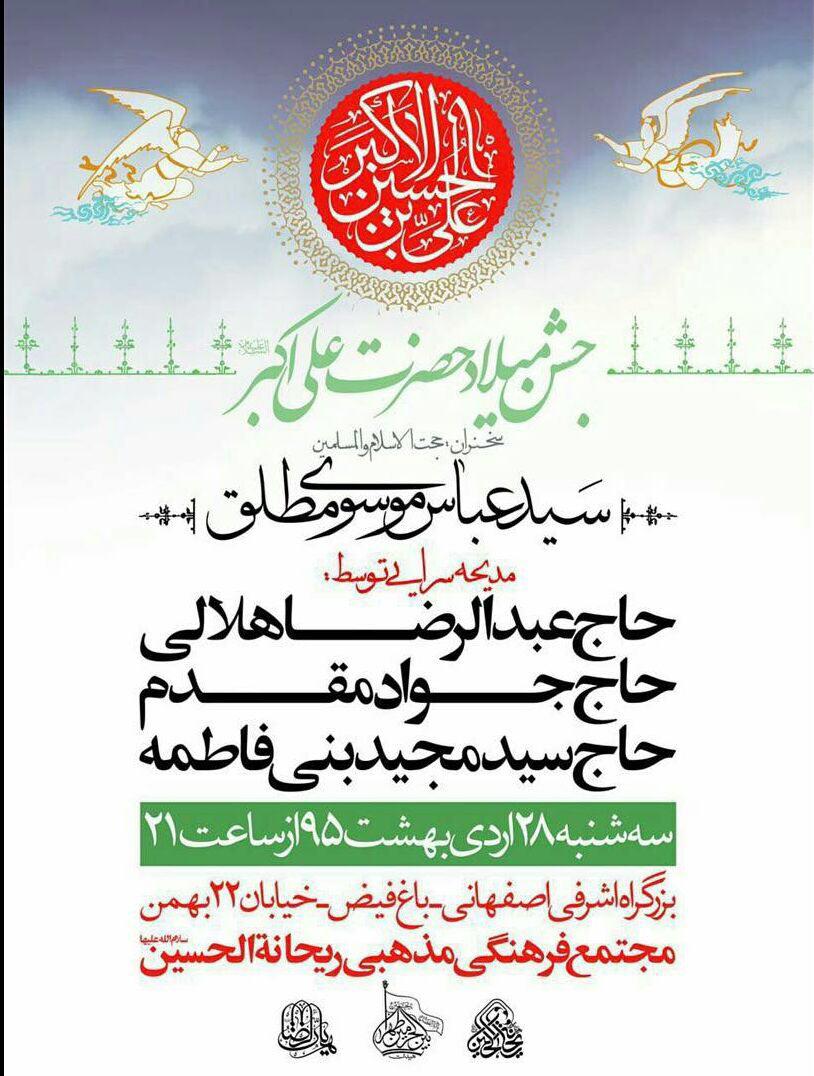 علی بن الحسین الاکبر
جشن میلاد حضرت علی اکبر
سخنران: حجت الاسلام والمسلمین
سید عباس موسوی مطلق
مدیحه سرایی توسط:
حاج عبدالرضا هلالی
حاج جواد مقدم
حاج سید مجید بنی فاطمه
سه شنبه ۲۸ اردی بهشت ۹۵ از ساعت ۲۱
بزرگراه اشرفی اصفهانی - باغ فیض - خیابان ۲۲ بهمن
مجتمع فرهنگی مذهبی ریحانة الحسین سلام الله علیها